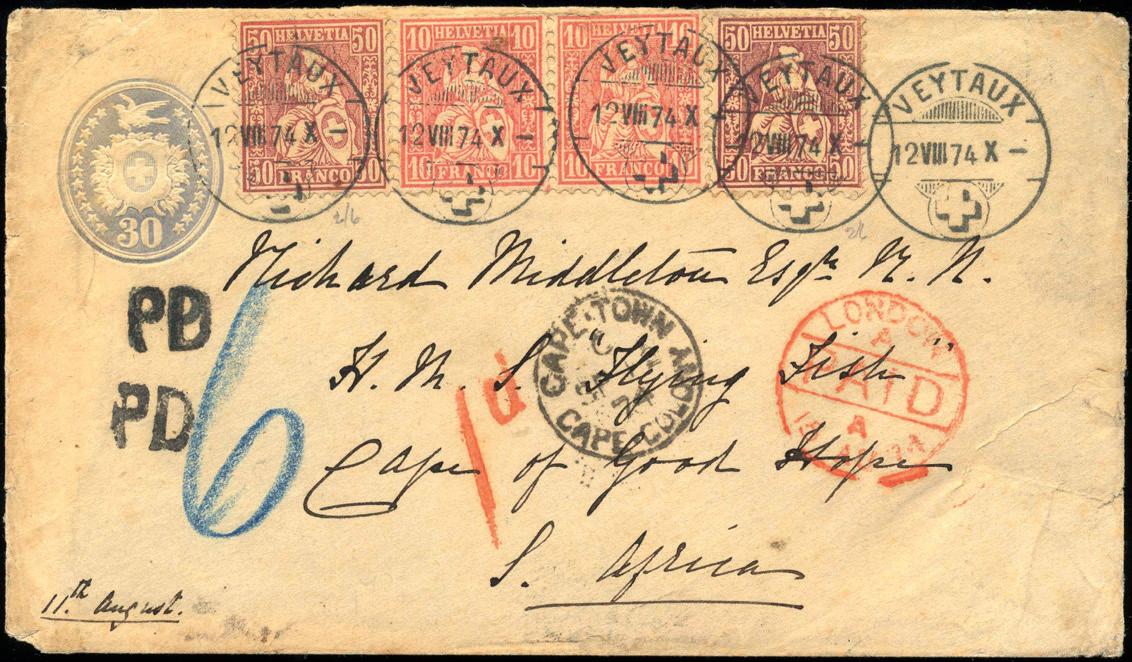 50 HELVETIA 50
50 FRANCO 50
10 HELVETIA 10
10 FRANCO 10
10 HELVETIA 10
10 FRANCO
50 HELVETIA 50
50 FRANCO 50
VEYTAUX
12 VIII 74 X –
VEYTAUX
12 VIII 74 X –
VEYTAUX
12 VIII 74 X –
VEYTAUX
12 VIII 74 X –
VEYTAUX
12 VIII 74 X –
30
2/6
Richard Middleton Esqre R. N.
PD
PD
6
H. M. S. "Flying Fish"
1d
CAPE-TOWN
CAPE COLONY
74
LONDON
A
PAID
A
Cape of Good Hope
S. Africa
11th August.